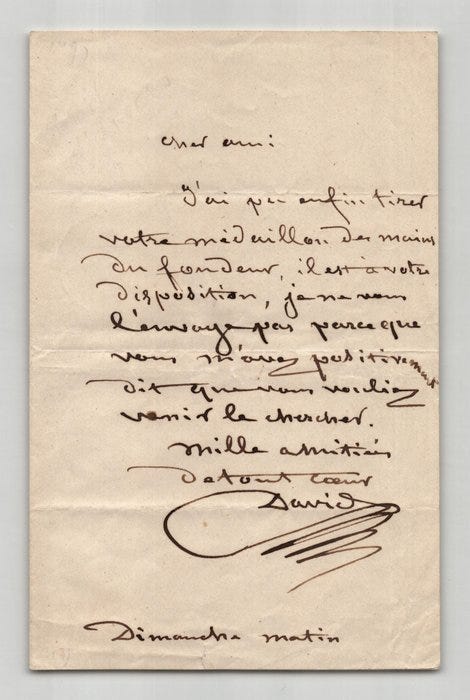 cher ami
J'ai pu enfin tirer
votre médaillon des mains
du fondeur, il est à votre
disposition, je ne vous
l'envoye pas parceque
vous m'avez positivement
dit que vous vouliez
venir le chercher.
mille amitiés
de tout cœur
David
Dimanche matin